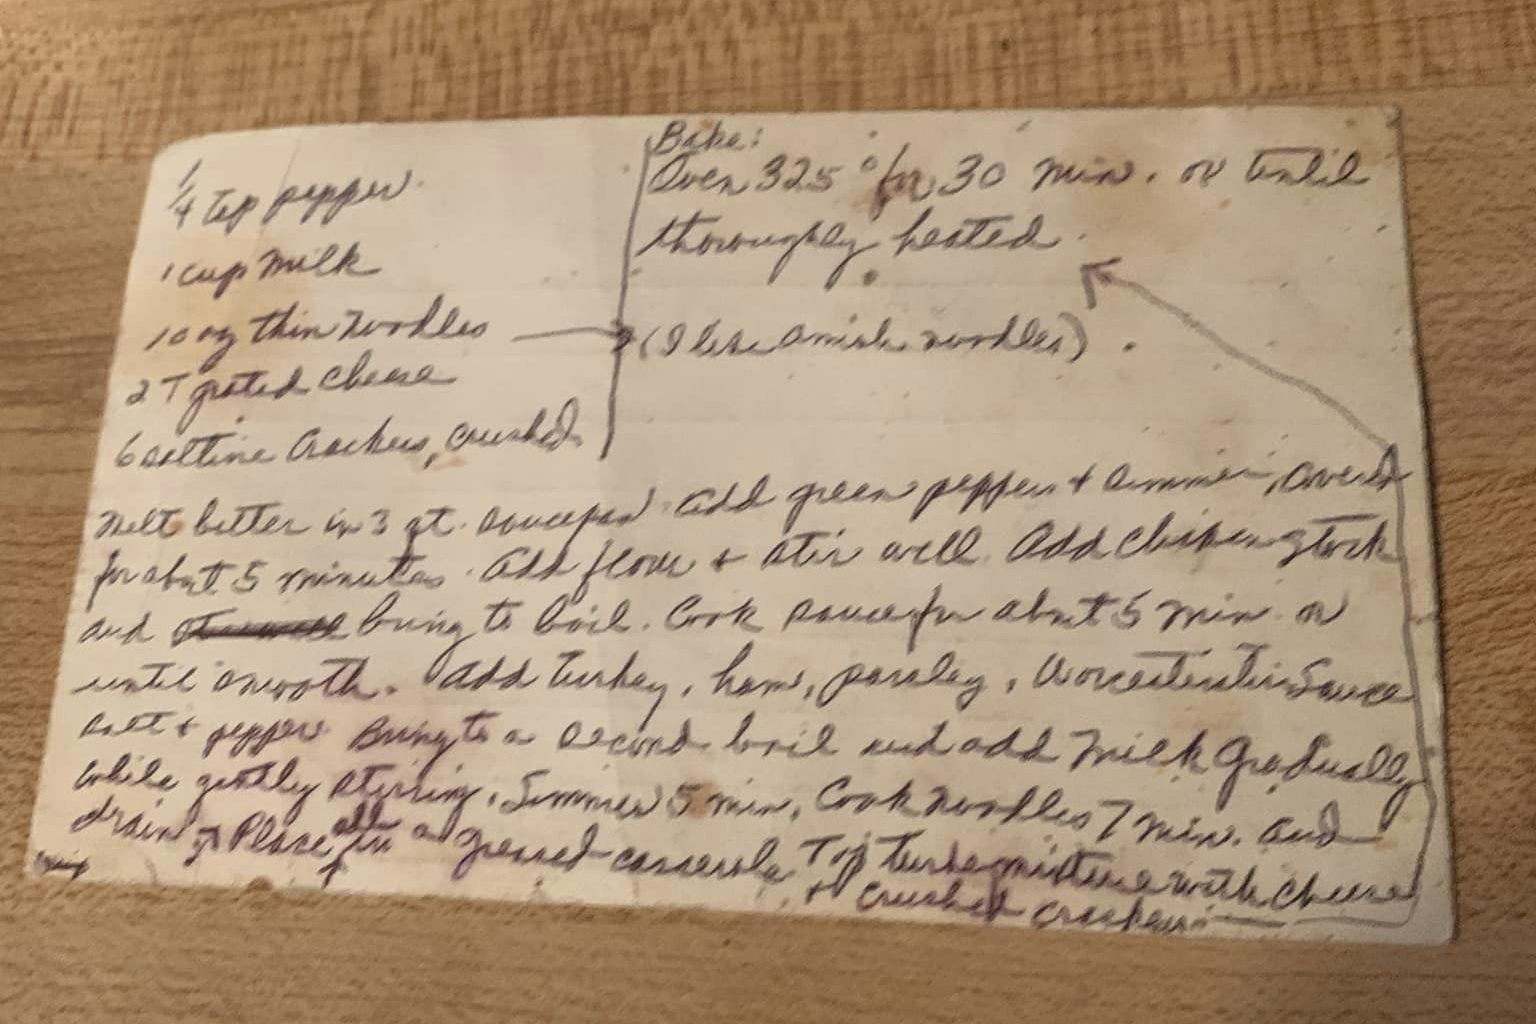 1/4 tsp pepper
1 cup milk
10 oz thin noodles
2 T grated cheese
6 saltine crackers, crushed
Bake:
Oven 325° for 30 min. or until
thoroughly heated.
(I use Amish noodles).
Melt butter in 3 qt. saucepan. Add green pepper & simmer, covered
for about 5 minutes. Add flour & stir well. Add chicken stock
and bring to boil. Cook sauce for about 5 min or
until smooth. Add turkey, ham, parsley, Worcestershire Sauce
salt & pepper. Bring to a second boil and add milk gradually
while gently stirring. Simmer 5 min. Cook noodles 7 min. and
drain. Place all in a greased casserole. Top turkey mixture with cheese
& crushed crackers